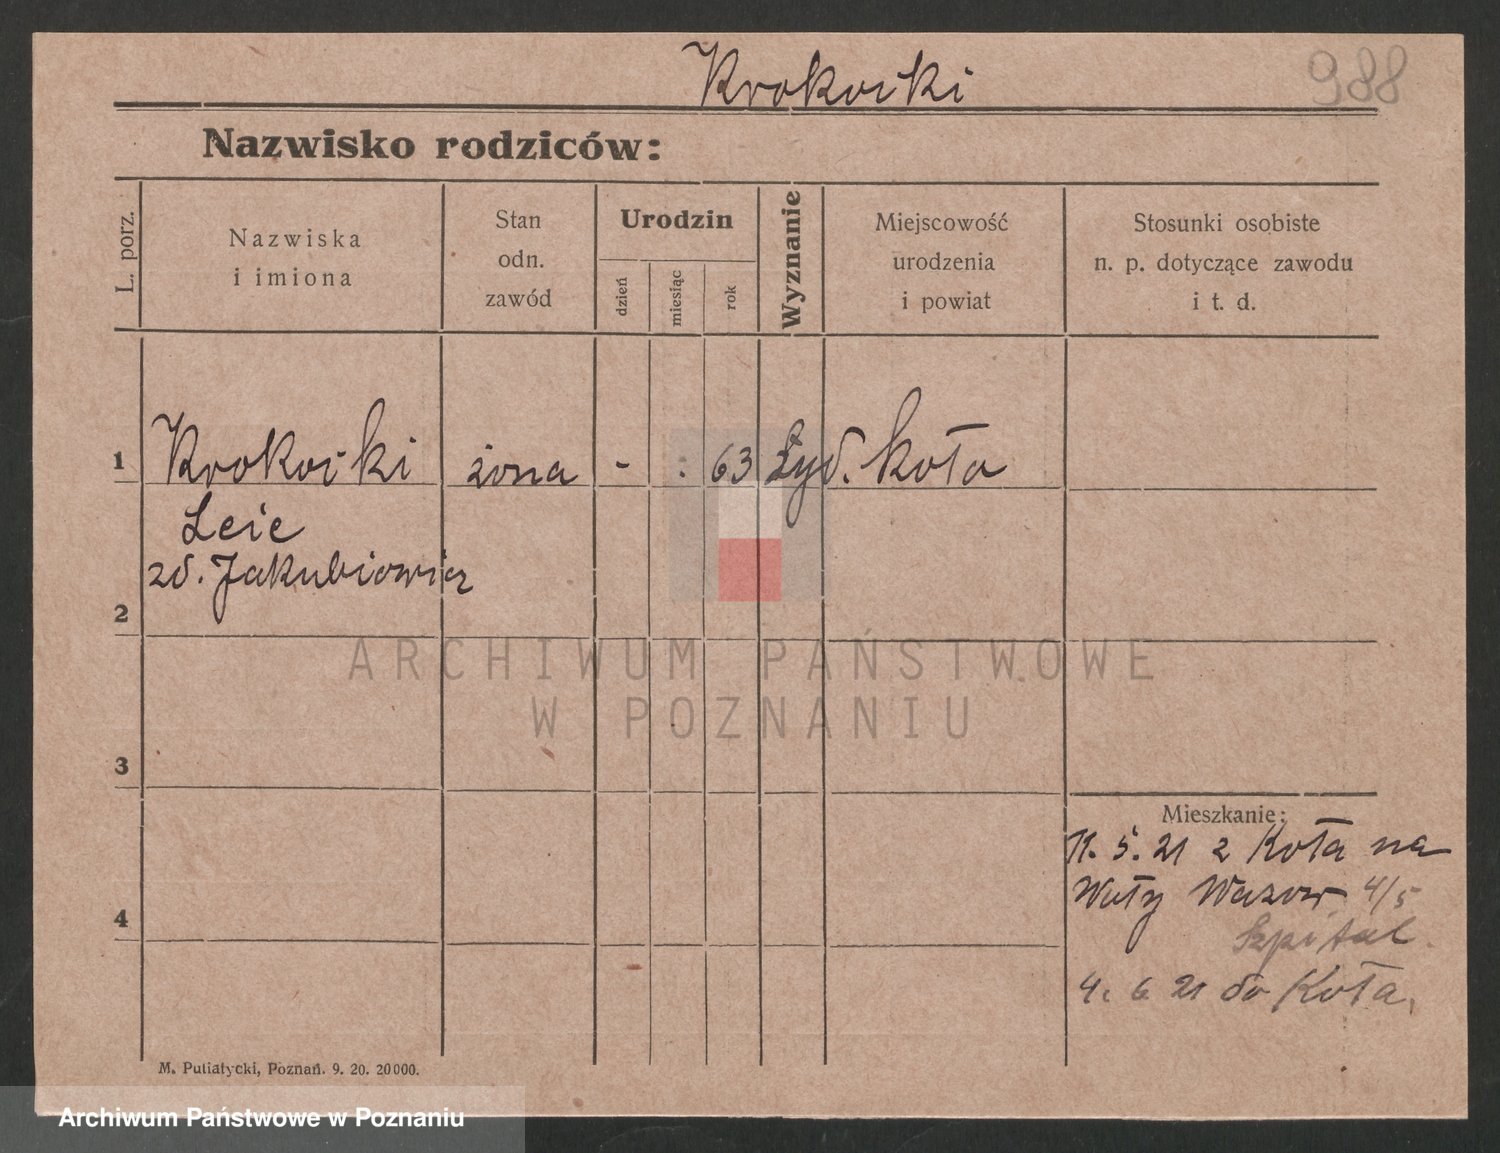 Krokocki
988
Nazwisko rodziców:
L. porz.
Nazwiska
i imiona
Stan
odn.
zawód
Urodzin
dzień
miesiąc
rok
Wyznanie
Miejscowość
urodzenia
i powiat
Stosunki osobiste
n. p. dotyczące zawodu
i t. d.
1 Krokocki żona - : 63 żyd. Koło
Leie
zd. Jakubiowicz
2
3
4
ARCHIWUM PAŃSTWOWE
W POZNANIU
Mieszkanie:
11. 5. 21 z Koła na
Wały Wazow 4/5
Szpital
4. 6 21 do Koła.
M. Putiatycki, Poznań. 9. 20. 20000.
Archiwum Państwowe w Poznaniu